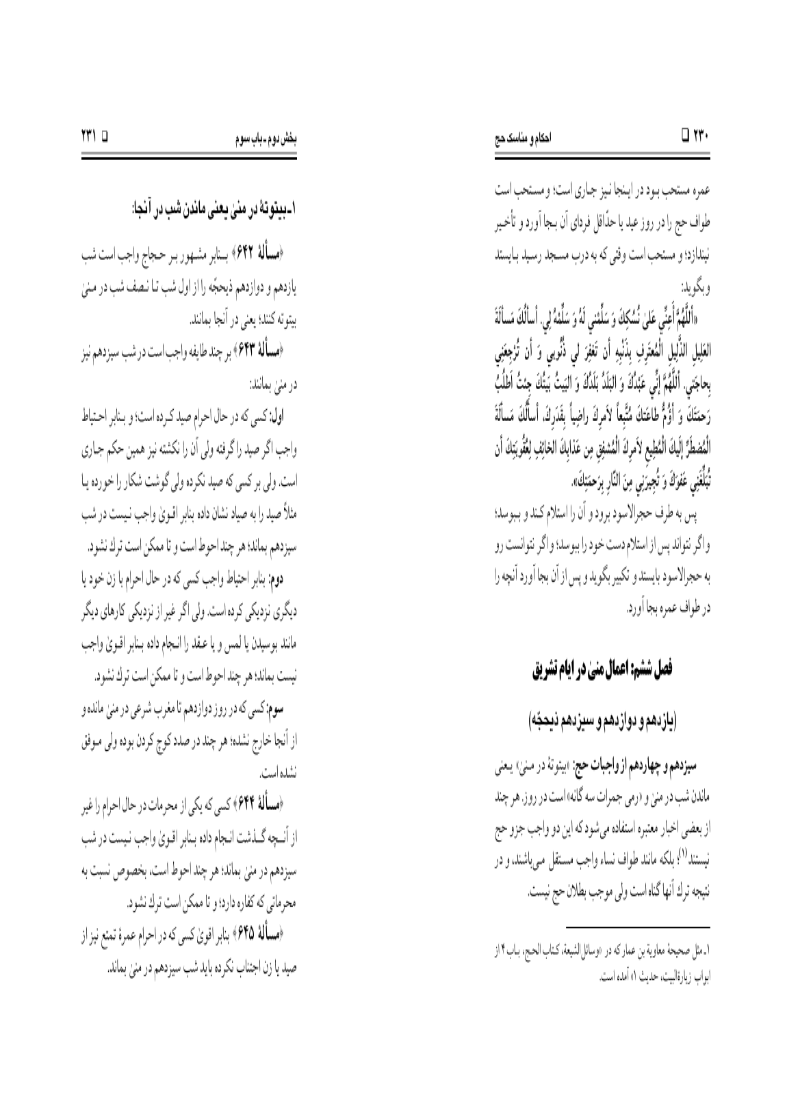 ۲۳۰ ❑ احکام و مناسک حج
عمره مستحب بود در اینجا نیز جاری است؛ و مستحب است
طواف حج را در روز عید یا حدّاقل فردای آن بجا آورد و تأخیر
نیندازد؛ و مستحب است وقتی که به درب مسجد رسید بایستد
و بگوید:
«أللّٰهُمَّ أَعِنِّي عَلىٰ نُسُكِكَ وَ سَلِّمْني لَهُ وَ سَلِّمْهُ لِي. أسألُكَ مَسألةَ
العَلِيلِ الذَّلِيلِ الْمُعتَرِفِ بِذَنْبِهِ أن تَغفِرَ لي ذُنُوبي وَ أن تُرْجِعَني
بِحاجَتي. أللّٰهُمَّ إنِّي عَبْدُكَ وَ البَلَدُ بَلَدُكَ وَ البَيتُ بَيتُكَ جِئتُ أطلُبُ
رَحمَتَكَ وَ أؤُمُّ طاعَتَكَ مُتَّبِعاً لأمرِكَ راضِياً بِقَدَرِكَ، أسألُكَ مَسألَةَ
الْمُضطَرِّ إلَيكَ الْمُطِيعِ لأمرِكَ الْمُشفِقِ مِن عَذابِكَ الخائِفِ لِعُقُوبَتِكَ أن
تُبَلِّغَنِي عَفوَكَ وَ تُجِيرَنِي مِنَ النّارِ بِرَحمَتِكَ».
پس به طرف حجرالاسود برود و آن را استلام کند و ببوسد؛
و اگر نتواند پس از استلام دست خود را ببوسد؛ و اگر نتوانست رو
به حجرالاسود بایستد و تکبیر بگوید و پس از آن بجا آورد آنچه را
در طواف عمره بجا آورد.
فصل ششم: اعمال منیٰ در ایام تشریق
(یازدهم و دوازدهم و سیزدهم ذیحجّه)
سیزدهم و چهاردهم از واجبات حج: «بیتوتهٔ در منیٰ» یعنی
ماندن شب در منیٰ و «رمی جمرات سه گانه» است در روز. هر چند
از بعضی اخبار معتبره استفاده می‌شود که این دو واجب جزو حج
نیستند(۱)؛ بلکه مانند طواف نساء واجب مستقل می‌باشند، و در
نتیجه ترک آنها گناه است ولی موجب بطلان حج نیست.
۱ـ مثل صحیحهٔ معاویة بن عمار که در «وسائل الشیعة، کتاب الحج، باب ۴ از
ابواب زیارةالبیت، حدیث ۱» آمده است.
بخش دوم ـ باب سوم ❑ ۲۳۱
۱ـ بیتوتهٔ در منیٰ یعنی ماندن شب در آنجا:
﴿مسألهٔ ۶۴۲﴾ بنابر مشهور بر حجاج واجب است شب
یازدهم و دوازدهم ذیحجّه را از اول شب تا نصف شب در منیٰ
بیتوته کنند؛ یعنی در آنجا بمانند.
﴿مسألهٔ ۶۴۳﴾ بر چند طایفه واجب است در شب سیزدهم نیز
در منیٰ بمانند:
اول: کسی که در حال احرام صید کرده است؛ و بنابر احتیاط
واجب اگر صید را گرفته ولی آن را نکشته نیز همین حکم جاری
است. ولی بر کسی که صید نکرده ولی گوشت شکار را خورده یا
مثلاً صید را به صیاد نشان داده بنابر اقویٰ واجب نیست در شب
سیزدهم بماند؛ هر چند احوط است و تا ممکن است ترک نشود.
دوم: بنابر احتیاط واجب کسی که در حال احرام با زن خود یا
دیگری نزدیکی کرده است. ولی اگر غیر از نزدیکی کارهای دیگر
مانند بوسیدن یا لمس و یا عقد را انجام داده بنابر اقویٰ واجب
نیست بماند؛ هر چند احوط است و تا ممکن است ترک نشود.
سوم: کسی که در روز دوازدهم تا مغرب شرعی در منیٰ مانده و
از آنجا خارج نشده؛ هر چند در صدد کوچ کردن بوده ولی موفق
نشده است.
﴿مسألهٔ ۶۴۴﴾ کسی که یکی از محرمات در حال احرام را غیر
از آنچه گذشت انجام داده بنابر اقویٰ واجب نیست در شب
سیزدهم در منیٰ بماند؛ هر چند احوط است، بخصوص نسبت به
محرماتی که کفاره دارد؛ و تا ممکن است ترک نشود.
﴿مسألهٔ ۶۴۵﴾ بنابر اقویٰ کسی که در احرام عمرهٔ تمتع نیز از
صید یا زن اجتناب نکرده باید شب سیزدهم در منیٰ بماند.